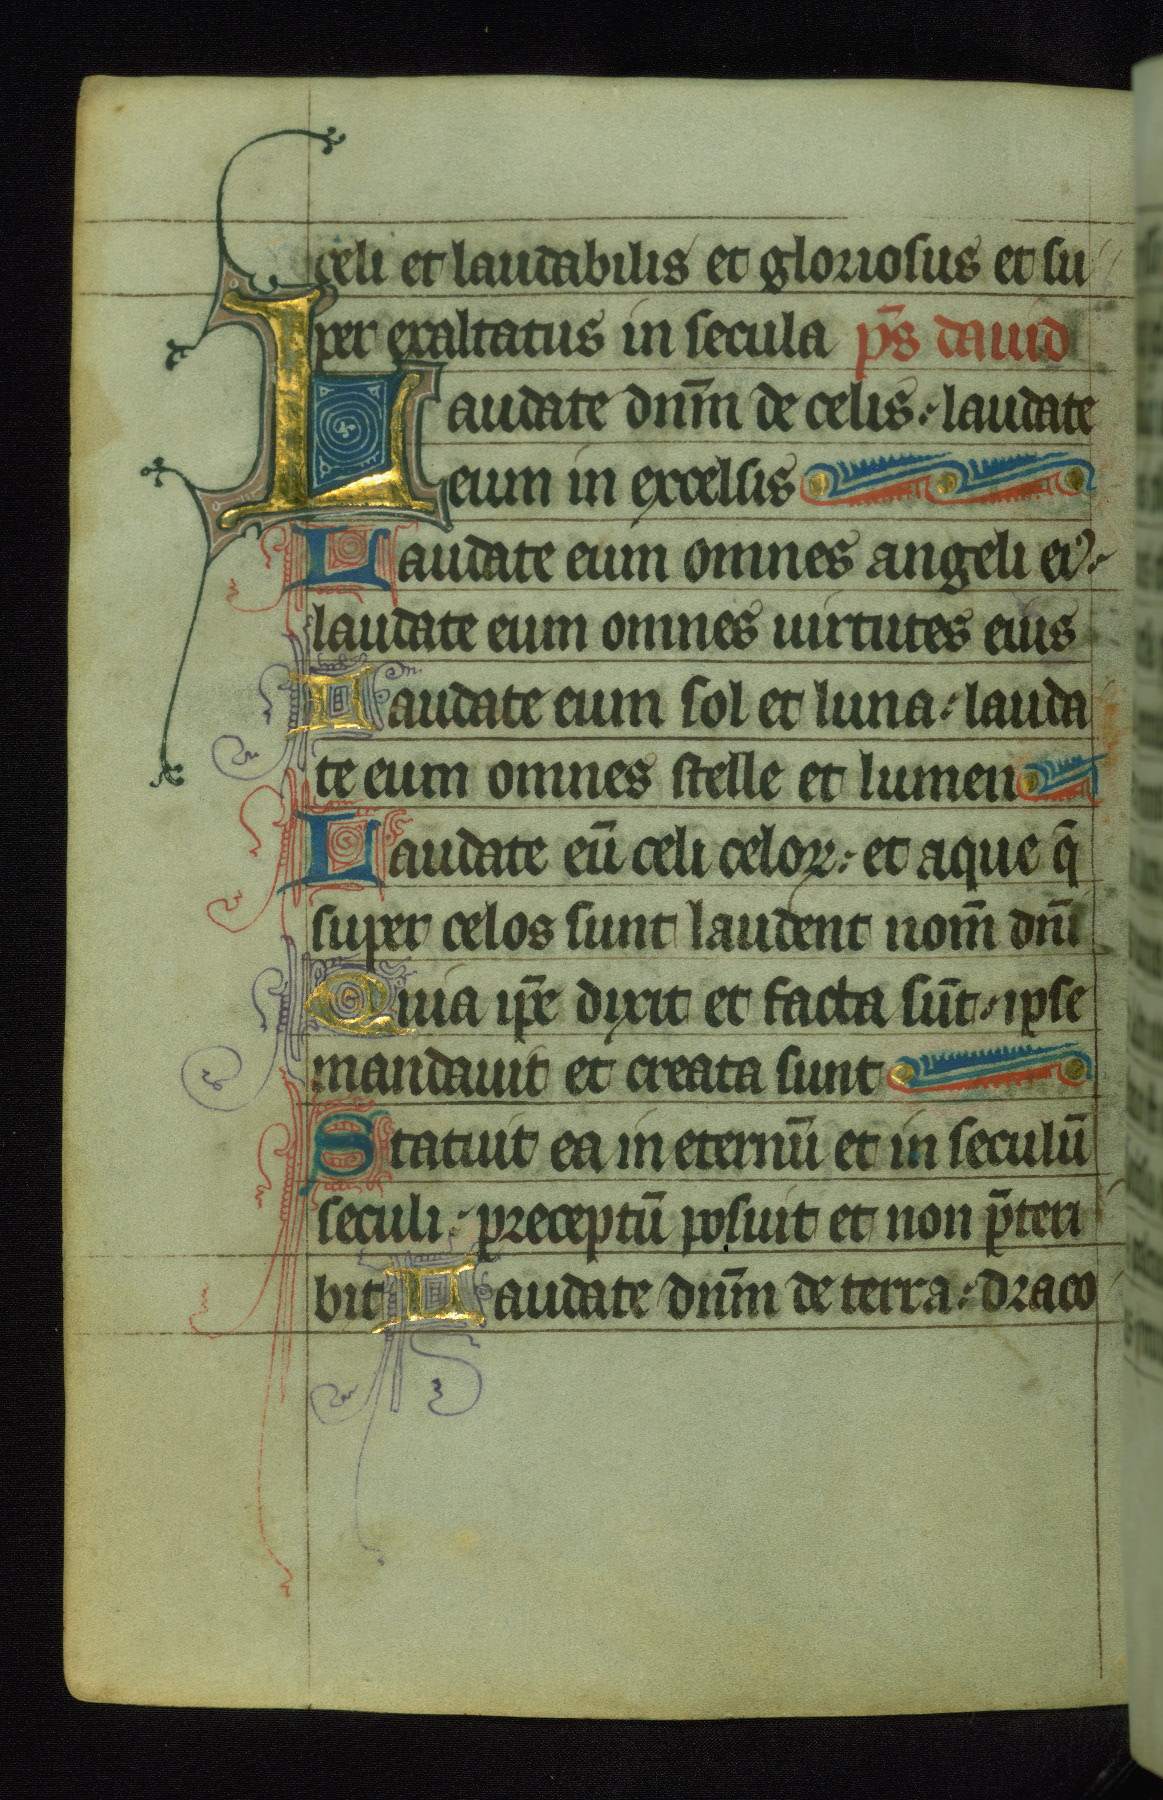 celi et laudabilis et gloriosus et su
per exaltatus in secula p̄s dauid
Laudate dn̄m de celis. laudate
eum in excelsis
Laudate eum omnes angeli eiꝰ.
laudate eum omnes uirtutes eius
Laudate eum sol et luna. lauda
te eum omnes stelle et lumen
Laudate eū celiceloꝝ. et aque q̄
super celos sunt laudent nom̄ dn̄i
Quia ip̄e dixit et facta sūt. ipse
mandauit et creata sunt
Statuit ea in eternū et in seculū
seculi. preceptū posuit et non p̄teri
bit Laudate dn̄m de terra. draco